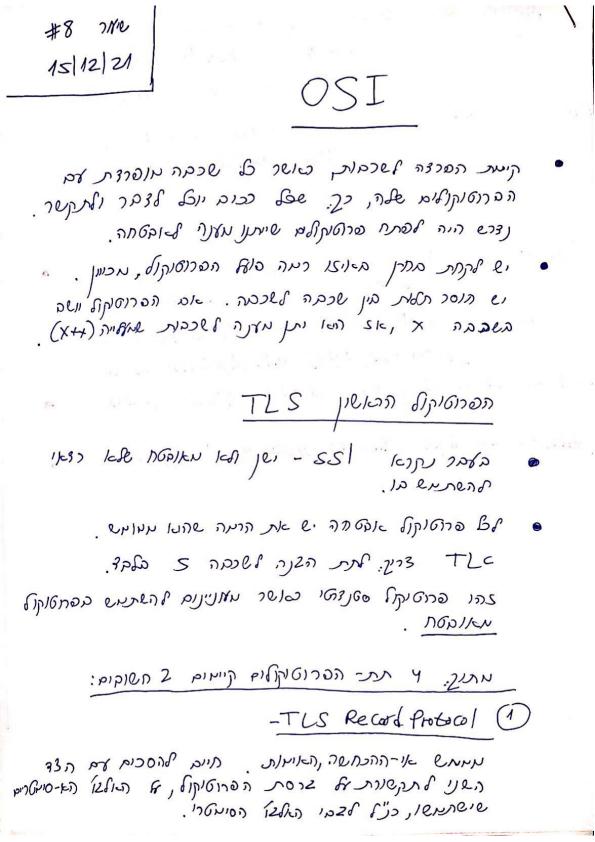 שיעור #8
15/12/21
OSI
קיימת הפרדה לשכבות, כאשר כל שכבה מופרדת עם
הפרוטוקולים שלה, כך שכל רכיב יוכל לדבר ולתקשר.
נדרש היה לפתח פרוטוקולים שייתנו מענה לאבטחה.
יש לקחת בחשבון באיזו רמה פועל הפרוטוקול, מכיוון
יש חוסר תלות בין שכבה לשכבה. אם הפרוטוקול יושב
בשכבה X, אז הוא יתן מענה לשכבות שמעליה (X++).
הפרוטוקול הראשון TLS
בעבר נקרא SSl - ישן ולא מאובטח שלא כדאי
להשתמש בו.
לכל פרוטוקול אבטחה יש את הרמה שהוא ממומש.
צריך לתת הבנה לשכבה 5 בלבד.
זהו פרוטוקול סטנדרטי כאשר מעוניינים להשתמש בפרוטוקול
מאובטח.
מתוך 4 תת-הפרוטוקולים קיימים 2 חשובים:
① TLS Record Protocol-
מממש אי-ההכחשה, האימות. חייב להסכים עם הצד
השני לתקשורת על גרסת הפרוטוקול, על האלגו' הא-סימטריים
שישתמשו, כנ"ל לגבי האלגו' הסימטרי.